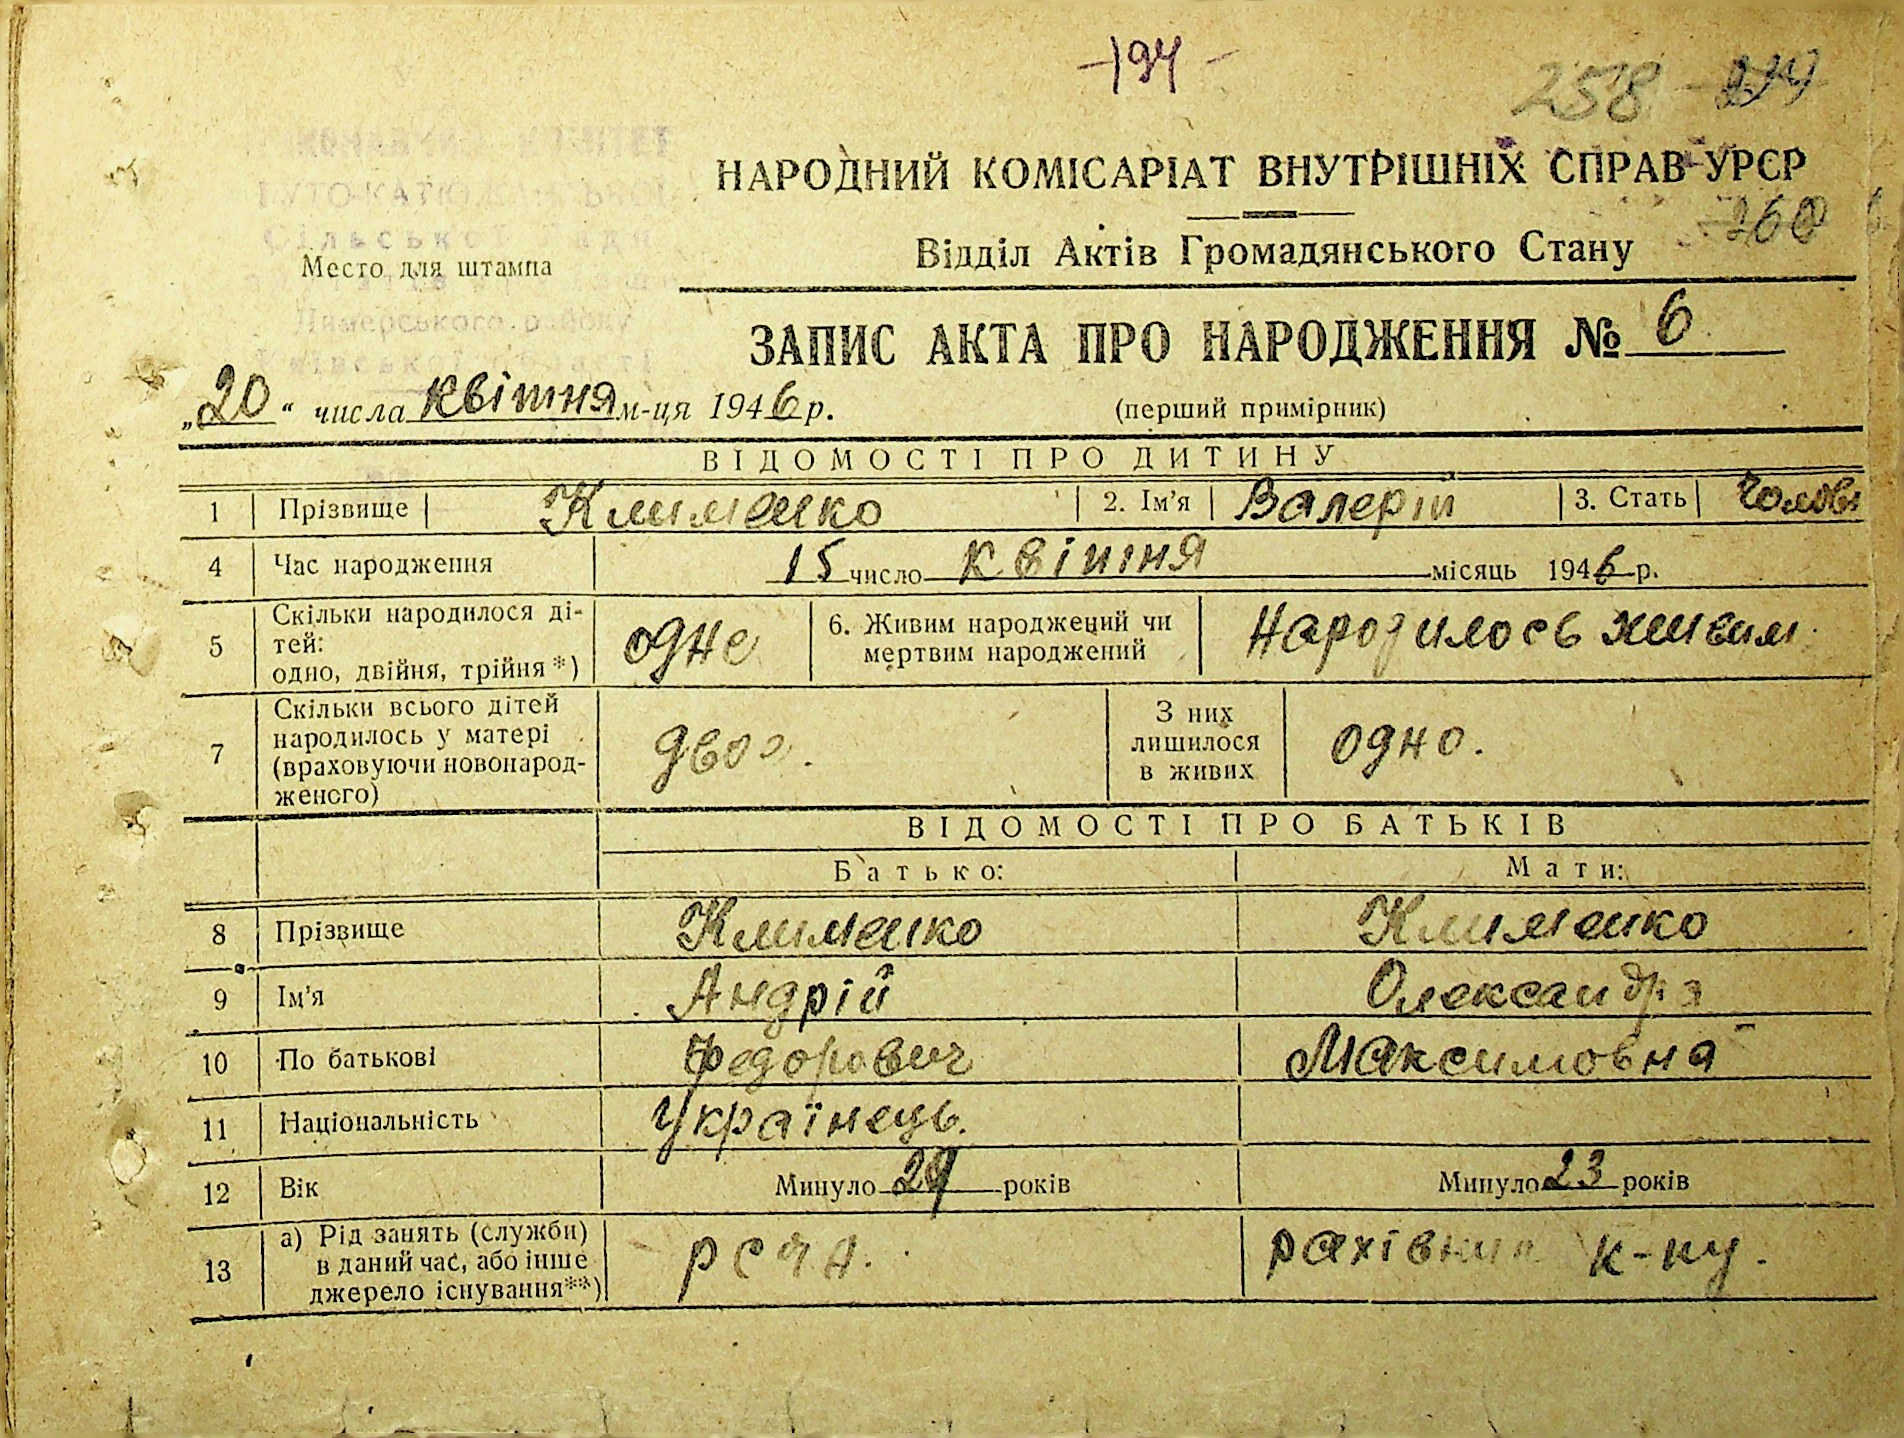 -194-
258
НАРОДНИЙ КОМІСАРІАТ ВНУТРІШНІХ СПРАВ УРСР
260
Відділ Актів Громадянського Стану
Место для штампа
Димерського району
ЗАПИС АКТА ПРО НАРОДЖЕННЯ № 6
„20“ числа квітня м-ця 1946 р. (перший примірник)
ВІДОМОСТІ ПРО ДИТИНУ
1 Прізвище Клименко 2. Ім'я Валерій 3. Стать Чолові
4 Час народження 15 число квітня місяць 1946 р.
5 Скільки народилося ді-
тей:
одно, двійня, трійня*) одне 6. Живим народжений чи
мертвим народжений Народилось живим
7 Скільки всього дітей
народилось у матері
(враховуючи новонарод-
женого) двоє. З них
лишилося
в живих одно.
ВІДОМОСТІ ПРО БАТЬКІВ
Батько: Мати:
8 Прізвище Клименко Клименко
9 Ім'я Андрій Олександра
10 По батькові Федорович Максимовна
11 Національність Українець.
12 Вік Минуло 29 років Минуло 23 років
13 а) Рід занять (служби)
в даний час, або інше
джерело існування**) рсча. рахівник к-пу.